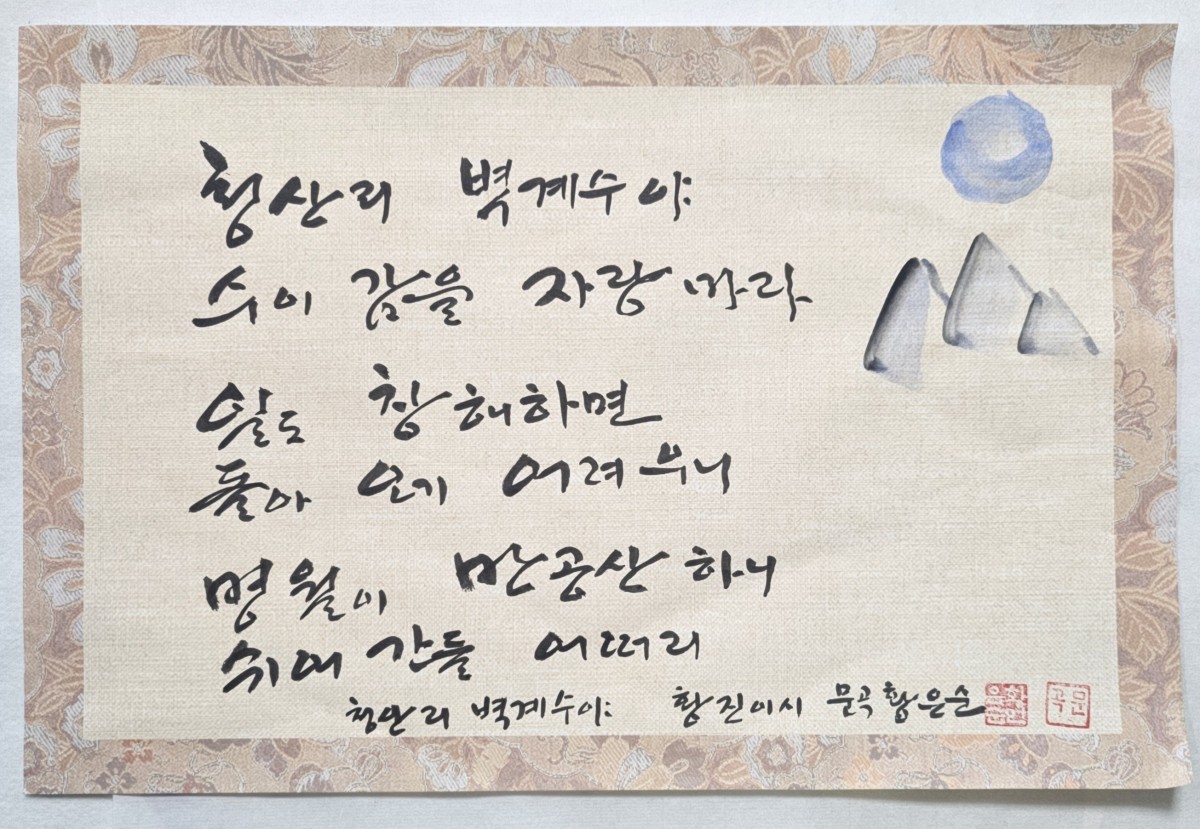 청산리 벽계수야
수이 감을 자랑 마라
일도 창해하면
돌아 오기 어려우니
명월이 만공산 하니
쉬여 간들 어떠리
청산리 벽계수야 황진이시 문곡 황은순
문곡